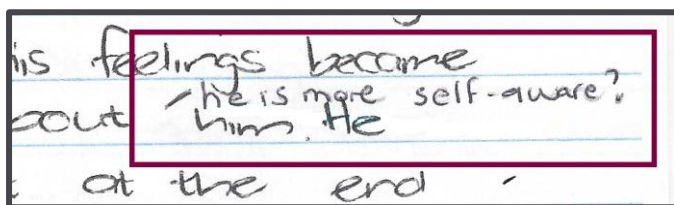 is feelings became
he is more self-aware?
out him. He
at the end